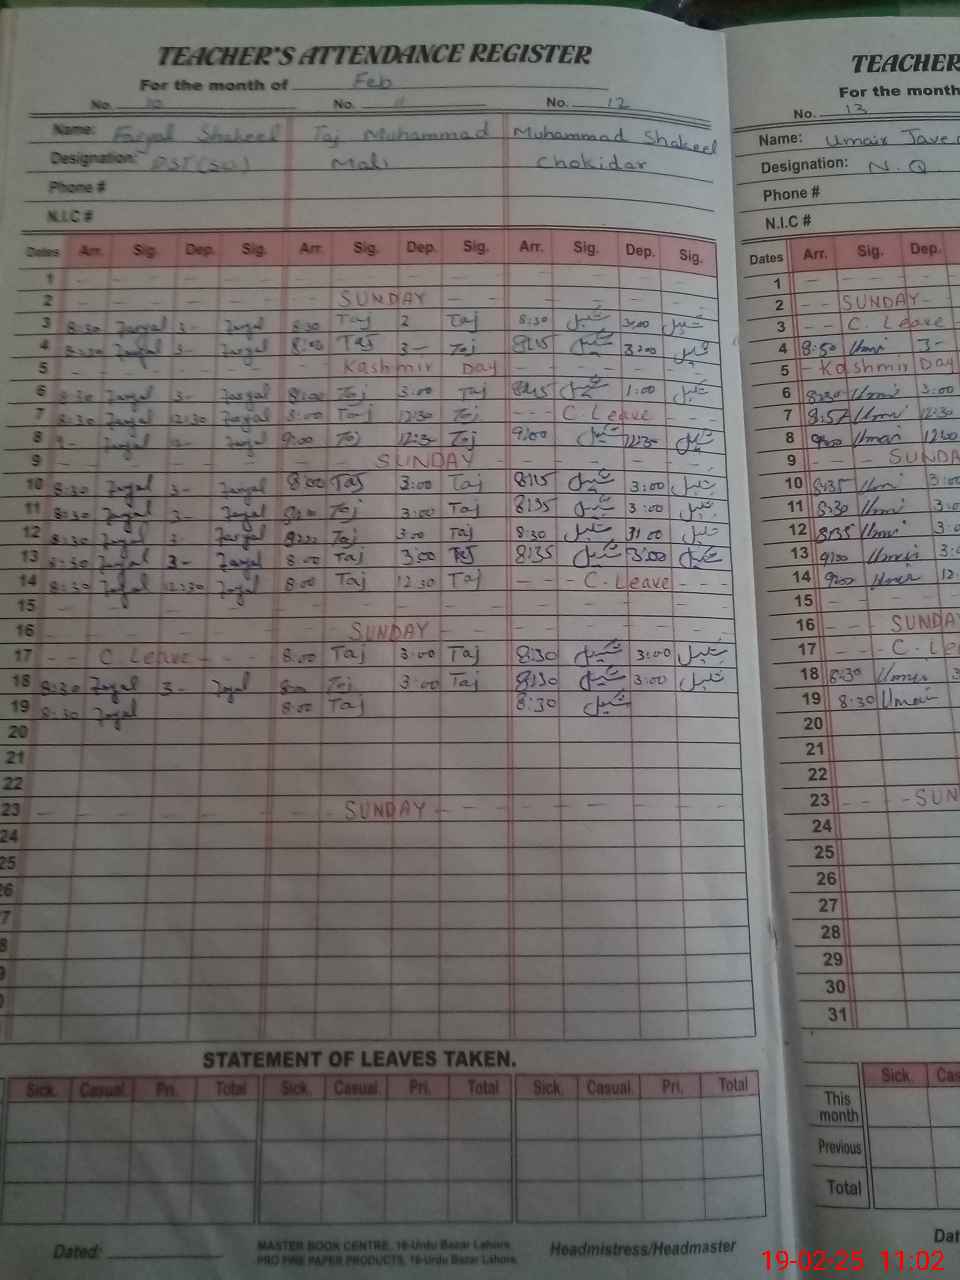 TEACHER'S ATTENDANCE REGISTER
For the month of Feb
No. 10 No. 11 No. 12
Name: Faryal Shakeel Taj Muhammad Muhammad Shakeel
Designation: Mali Chokidar
Phone #
N.I.C #
Dates Arr. Sig. Dep. Sig. Arr. Sig. Dep. Sig. Arr. Sig. Dep. Sig.
1
2 SUNDAY
3 8:30 Faryal 3- Faryal 8:30 Taj 2 Taj 8:30 شکیل 3:00 شکیل
4 8:30 Faryal 3- Faryal 8:00 Taj 3- Taj 8:15 شکیل 3:00 شکیل
5 Kashmir Day
6 8:30 Faryal 3- Faryal 8:00 Taj 3:00 Taj 8:15 شکیل 1:00 شکیل
7 8:30 Faryal 12:30 Faryal 8:00 Taj 12:30 Taj C. Leave
8 9- Faryal Faryal 9:00 Taj 12:30 Taj 9:00 شکیل 12:30 شکیل
9 SUNDAY
10 8:30 Faryal 3- Faryal 8:00 Taj 3:00 Taj 8:15 شکیل 3:00 شکیل
11 8:30 Faryal 3- Faryal 8:00 Taj 3:00 Taj 8:35 شکیل 3:00 شکیل
12 8:30 Faryal 3 Faryal 8:00 Taj 3:00 Taj 8:30 شکیل 3:00 شکیل
13 8:30 Faryal 3- Faryal 8:00 Taj 3:00 Taj 8:35 شکیل 3:00 شکیل
14 8:30 Faryal 12:30 Faryal 8:00 Taj 12:30 Taj C. Leave
15
16 SUNDAY
17 C. Leave 8:00 Taj 3:00 Taj 8:30 شکیل 3:00 شکیل
18 8:30 Faryal 3- Faryal 8:00 Taj 3:00 Taj 8:30 شکیل 3:00 شکیل
19 8:30 Faryal 8:00 Taj 8:30 شکیل
20
21
22
23 SUNDAY
24
25
26
7
8
9
0
STATEMENT OF LEAVES TAKEN.
Sick. Casual. Pri. Total Sick. Casual. Pri. Total Sick. Casual. Pri. Total
Dated:
MASTER BOOK CENTRE, 16-Urdu Bazar Lahore.
PRO FINE PAPER PRODUCTS, 16-Urdu Bazar Lahore.
Headmistress/Headmaster
TEACHER
For the month
No. 13
Name: Umair Jave
Designation: N.Q.
Phone #
N.I.C #
Dates Arr. Sig. Dep.
1
2 SUNDAY
3 C. Leave
4 8:50 Umair 3-
5 Kashmir Day
6 8:30 Umair 3:00
7 8:52 Umair 12:30
8 9:00 Umair 12:00
9 SUNDA
10 8:35 Umair 3:00
11 8:30 Umair 3:0
12 8:35 Umair 3:0
13 9:00 Umair 3:
14 9:00 Umair 12:
15
16 SUNDA
17 C. Le
18 8:30 Umair 3
19 8:30 Umair
20
21
22
23 SUN
24
25
26
27
28
29
30
31
Sick. Cas
This month
Previous
Total
Dat
19-02-25 11:02